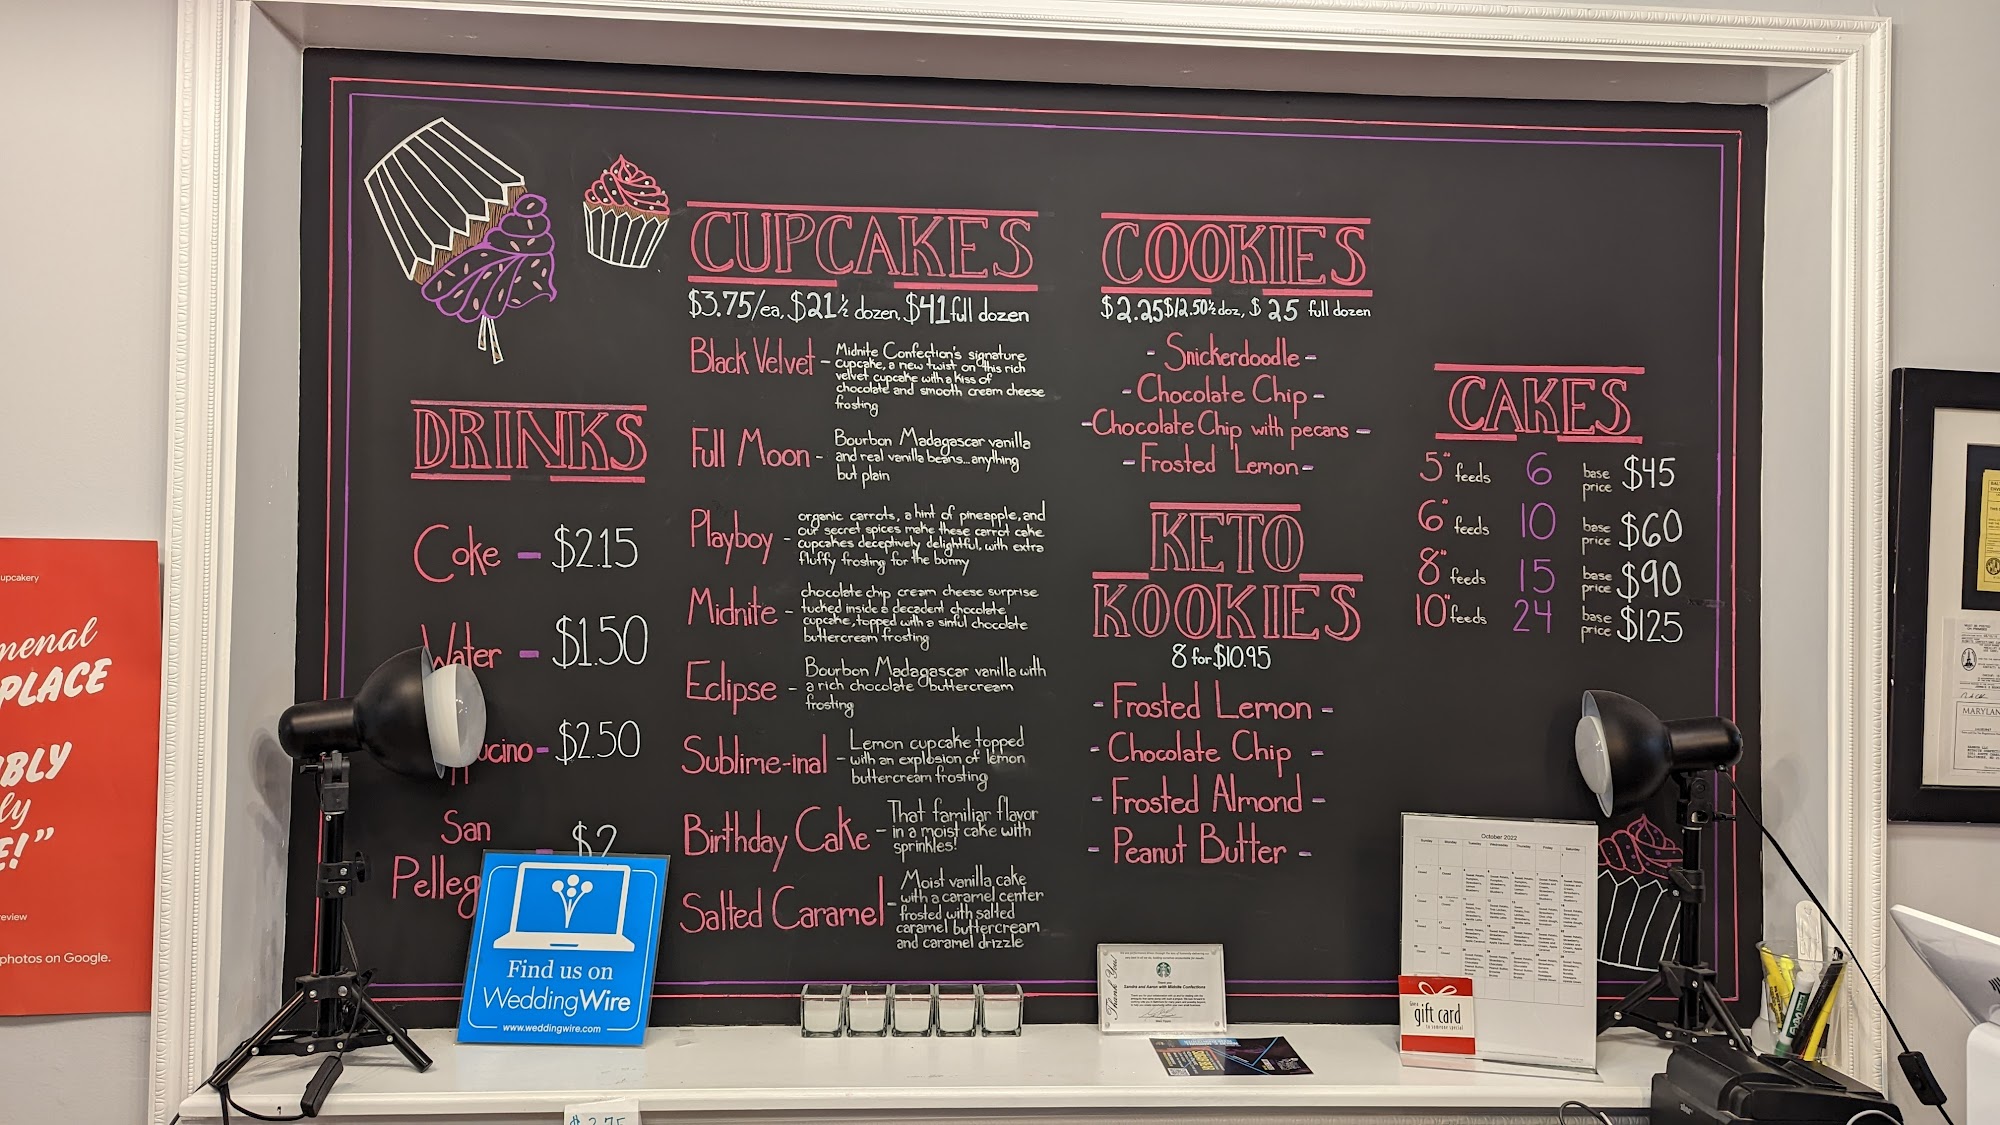 DRINKS
Coke - $2.15
Water - $1.50
- $2.50
San - $2
CUPCAKES
$3.75/ea, $21 ½ dozen, $41 full dozen
Black Velvet - Midnite Confection's signature
cupcake, a new twist on this rich
velvet cupcake with a kiss of
chocolate and smooth cream cheese
frosting
Full Moon - Bourbon Madagascar vanilla
and real vanilla beans...anything
but plain
Playboy - organic carrots, a hint of pineapple, and
our secret spices make these carrot cake
cupcakes deceptively delightful, with extra
fluffy frosting for the bunny
Midnite - chocolate chip cream cheese surprise
tucked inside a decadent chocolate
cupcake, topped with a sinful chocolate
buttercream frosting
Eclipse - Bourbon Madagascar vanilla with
a rich chocolate buttercream
frosting
Sublime-inal - Lemon cupcake topped
with an explosion of lemon
buttercream frosting
Birthday Cake - That familiar flavor
in a moist cake with
sprinkles!
Salted Caramel - Moist vanilla cake
with a caramel center
frosted with salted
caramel buttercream
and caramel drizzle
COOKIES
$2.25 $12.50 ½ doz, $25 full dozen
- Snickerdoodle -
- Chocolate Chip -
- Chocolate Chip with pecans -
- Frosted Lemon -
KETO
KOOKIES
8 for $10.95
- Frosted Lemon -
- Chocolate Chip -
- Frosted Almond -
- Peanut Butter -
CAKES
5" feeds 6 base price $45
6" feeds 10 base price $60
8" feeds 15 base price $90
10" feeds 24 base price $125
Find us on
WeddingWire
www.weddingwire.com
Thank You!
Sandra and Aaron with Midnite Confections
October 2022
Sunday Monday Tuesday Wednesday Thursday Friday Saturday
Give a
gift card
to someone special
PLACE
photos on Google.
MARYLAN
EXPO